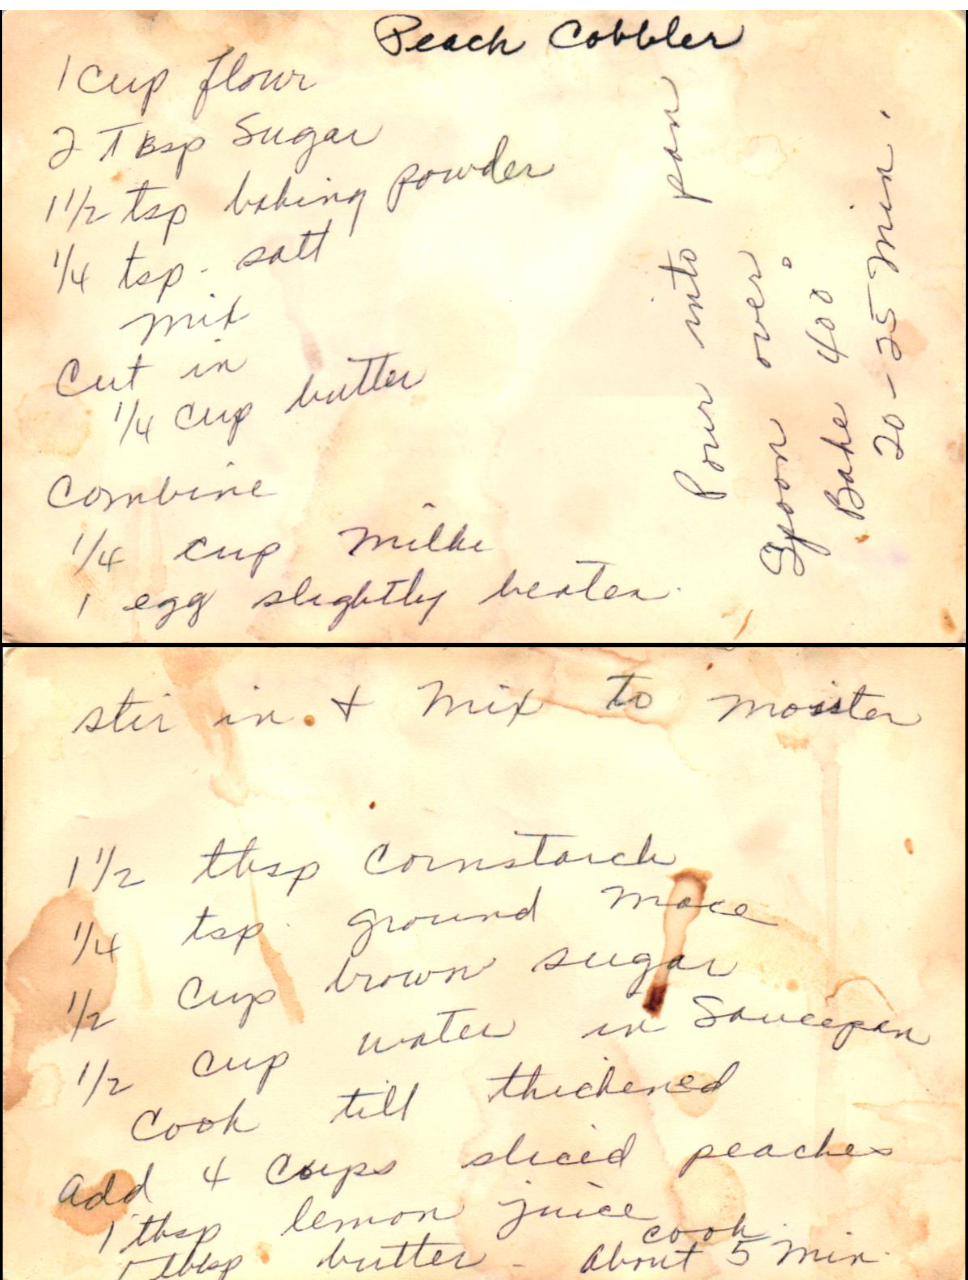 Peach Cobbler
1 cup flour
2 TBsp Sugar
1 1/2 tsp baking powder
1/4 tsp. salt
mix
Cut in
1/4 cup butter
Combine
1/4 cup Milk
1 egg slightly beaten.
Pour into pan
Spoon over.
Bake 400°
20-25 Min.
stir in. + Mix to moisten
1 1/2 tbsp Cornstarch
1/4 tsp. ground mace
1/2 cup brown sugar
1/2 cup water in Saucepan
Cook till thickened
add 4 Cups sliced peaches
1 tbsp lemon juice
tbsp butter - cook
About 5 Min.